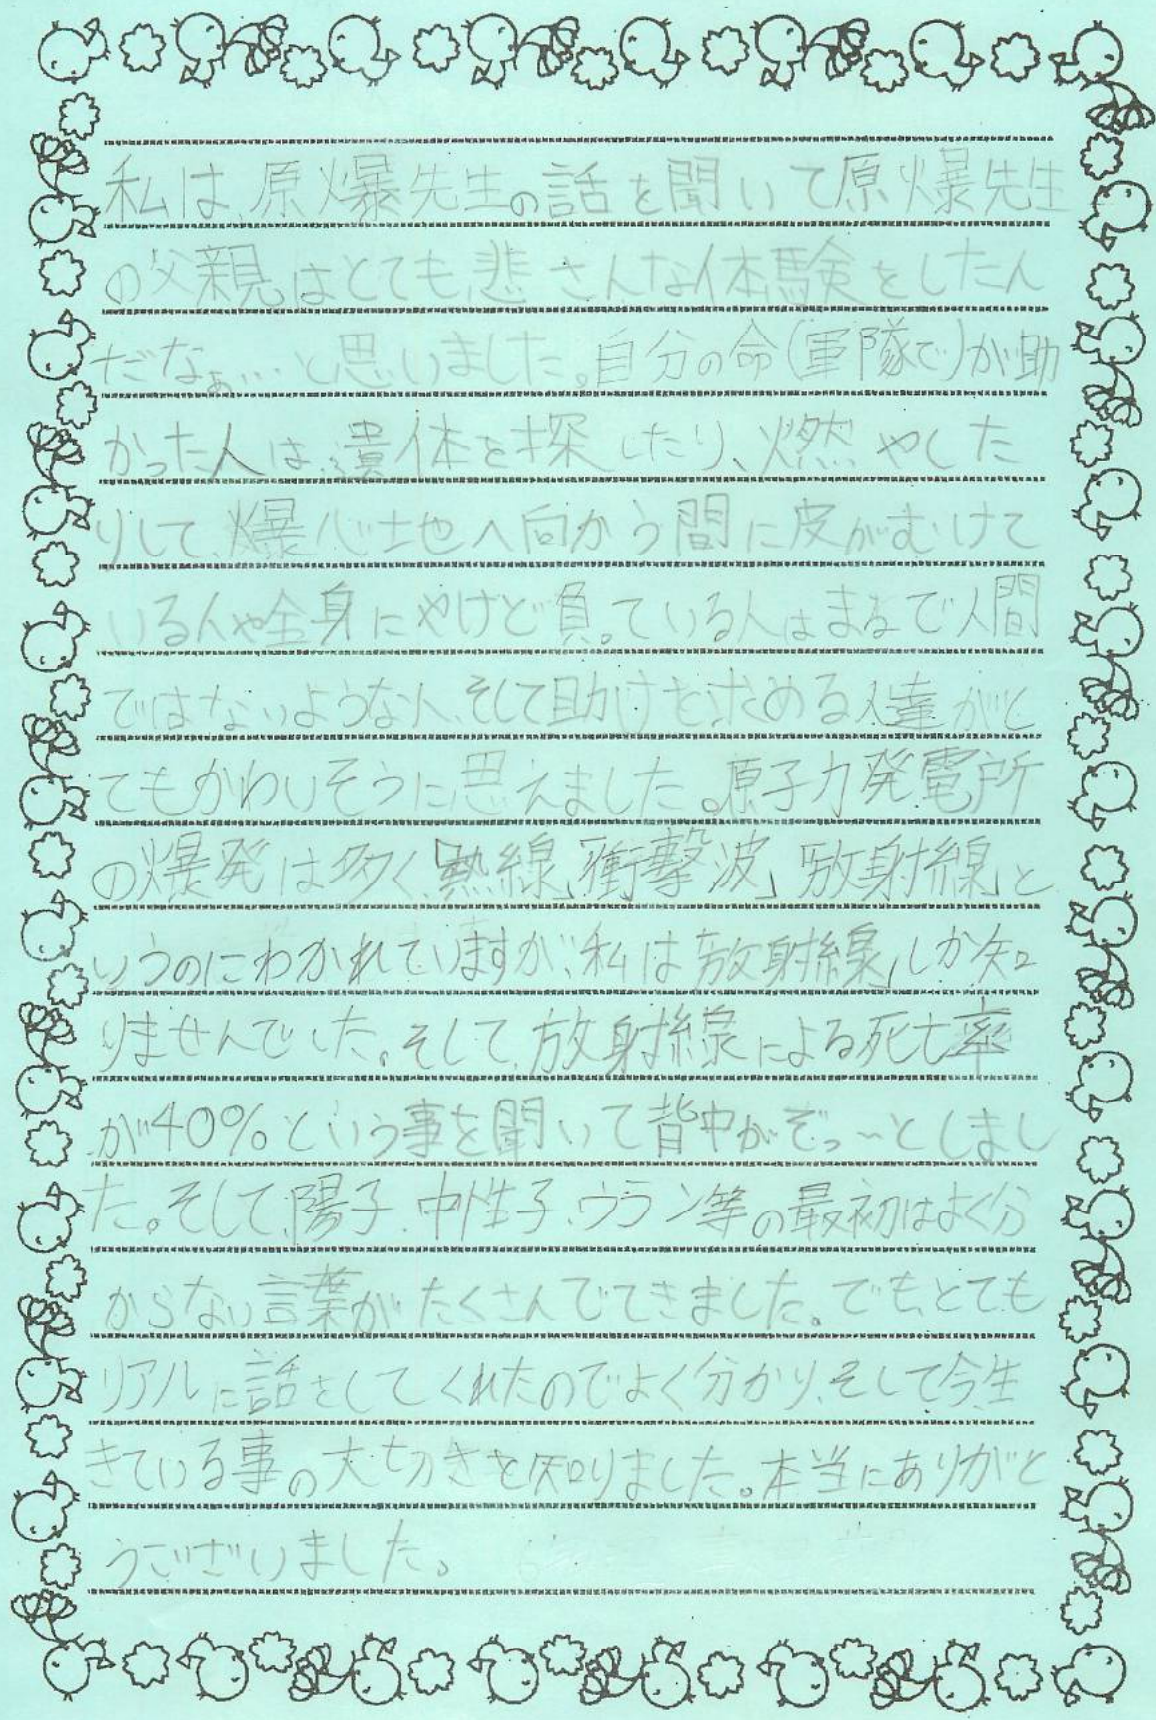 私は、原爆先生の話を聞いて原爆先生
の父親はとても悲さんな体験をしたん
だなぁ…と思いました。自分の命(軍隊で)が助
かった人は、遺体を探したり、燃やした
りして、爆心地へ向かう間に皮がむけて
いる人や全身にやけど負っている人はまるで人間
ではないような人、そして助けを求める人達がと
てもかわいそうに思えました。原子力発電所
の爆発は多く、「熱線」「衝撃波」「放射線」と
いうのにわかれていますが、私は「放射線」しか知
りませんでした。そして、放射線による死亡率
が40%という事を聞いて背中がぞっ〜としまし
た。そして、陽子、中性子、ウラン等の最初はよく分
からない言葉がたくさんでてきました。でも、とても
リアルに話をしてくれたのでよく分かり、そして今生
きている事の大切さを知りました。本当にありがと
うございました。